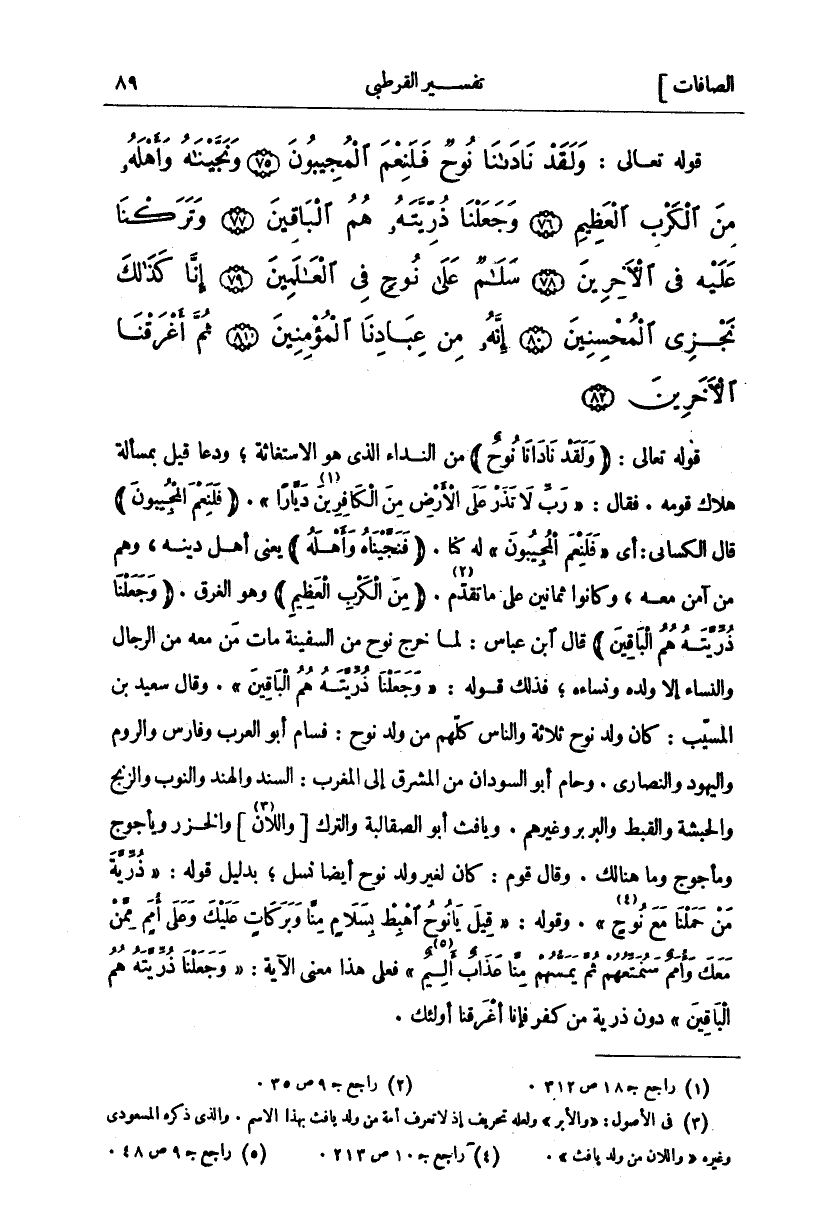 الصافات ] تفسير القرطبى ٨٩
قوله تعالى : وَلَقَدْ نَادَىٰنَا نُوحٌ فَلَنِعْمَ ٱلْمُجِيبُونَ ﴿٧٥﴾ وَنَجَّيْنَٰهُ وَأَهْلَهُۥ
مِنَ ٱلْكَرْبِ ٱلْعَظِيمِ ﴿٧٦﴾ وَجَعَلْنَا ذُرِّيَّتَهُۥ هُمُ ٱلْبَاقِينَ ﴿٧٧﴾ وَتَرَكْنَا
عَلَيْهِ فِى ٱلْأَخِرِينَ ﴿٧٨﴾ سَلَٰمٌ عَلَىٰ نُوحٍ فِى ٱلْعَٰلَمِينَ ﴿٧٩﴾ إِنَّا كَذَٰلِكَ
نَجْزِى ٱلْمُحْسِنِينَ ﴿٨٠﴾ إِنَّهُۥ مِنْ عِبَادِنَا ٱلْمُؤْمِنِينَ ﴿٨١﴾ ثُمَّ أَغْرَقْنَا
ٱلْأَخَرِينَ ﴿٨٢﴾
قوله تعالى : ﴿ وَلَقَدْ نَادَانَا نُوحٌ ﴾ من النداء الذى هو الاستغاثة ؛ ودعا قيل بمسألة
هلاك قومه . فقال : « رَبِّ لَا تَذَرْ عَلَى الْأَرْضِ مِنَ الْكَافِرِينَ دَيَّارًا (١) » . ﴿ فَلَنِعْمَ الْمُجِيبُونَ ﴾
قال الكسائى : أى « فَلَنِعْمَ الْمُجِيبُونَ » له كنا . ﴿ فَنَجَّيْنَاهُ وَأَهْلَهُ ﴾ يعنى أهل دينه ، وهم
من آمن معه ، وكانوا ثمانين على ما تقدّم (٢) . ﴿ مِنَ الْكَرْبِ الْعَظِيمِ ﴾ وهو الغرق . ﴿ وَجَعَلْنَا
ذُرِّيَّتَهُ هُمُ الْبَاقِينَ ﴾ قال آبن عباس : لما خرج نوح من السفينة مات مَن معه من الرجال
والنساء إلا ولده ونساءه ؛ فذلك قوله : « وَجَعَلْنَا ذُرِّيَّتَهُ هُمُ الْبَاقِينَ » . وقال سعيد بن
المسيّب : كان ولد نوح ثلاثة والناس كلّهم من ولد نوح : فسام أبو العرب وفارس والروم
واليهود والنصارى . وحام أبو السودان من المشرق إلى المغرب : السند والهند والنوب والزنج
والحبشة والقبط والبربر وغيرهم . ويافث أبو الصقالبة والترك [ واللان (٣) ] والخزر ويأجوج
ومأجوج وما هنالك . وقال قوم : كان لغير ولد نوح أيضا نسل ؛ بدليل قوله : « ذُرِّيَّةَ
مَنْ حَمَلْنَا مَعَ نُوحٍ (٤) » . وقوله : « قِيلَ يَانُوحُ اهْبِطْ بِسَلَامٍ مِنَّا وَبَرَكَاتٍ عَلَيْكَ وَعَلَى أُمَمٍ مِمَّنْ
مَعَكَ وَأُمَمٌ سَنُمَتِّعُهُمْ ثُمَّ يَمَسُّهُمْ مِنَّا عَذَابٌ أَلِيمٌ (٥) » فعلى هذا معنى الآية : « وَجَعَلْنَا ذُرِّيَّتَهُ هُمُ
الْبَاقِينَ » دون ذرية من كفر فإنا أغرقنا أولئك .
(١) راجع جـ ١٨ ص ٣١٢ . (٢) راجع جـ ٩ ص ٣٥ .
(٣) فى الأصول : «والأبر» ولعله تحريف إذ لا تعرف أمة من ولد يافث بهذا الاسم . والذى ذكره المسعودى
وغيره « واللان من ولد يافث » . (٤) راجع جـ ١٠ ص ٢١٣ . (٥) راجع جـ ٩ ص ٤٨ .